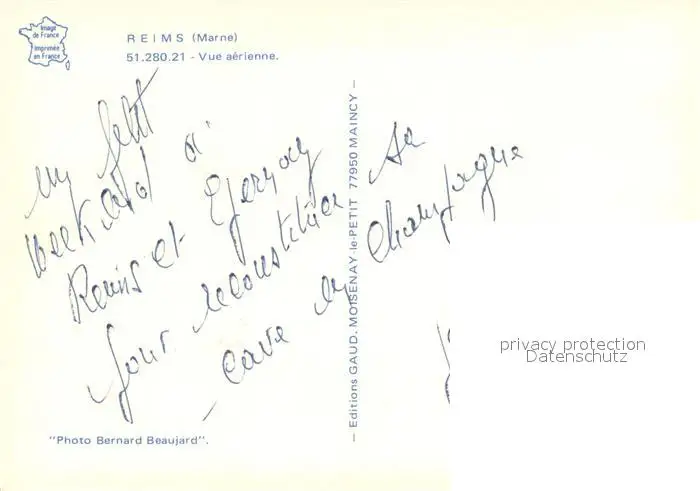 Image
de France
Imprimée
en France
REIMS (Marne)
51.280.21 - Vue aérienne.
un petit
week end à
Reims et Epernay
pour reconstituer sa
cave en champagne
— Editions GAUD. MOISENAY-le-PETIT 77950 MAINCY —
privacy protection
Datenschutz
"Photo Bernard Beaujard".